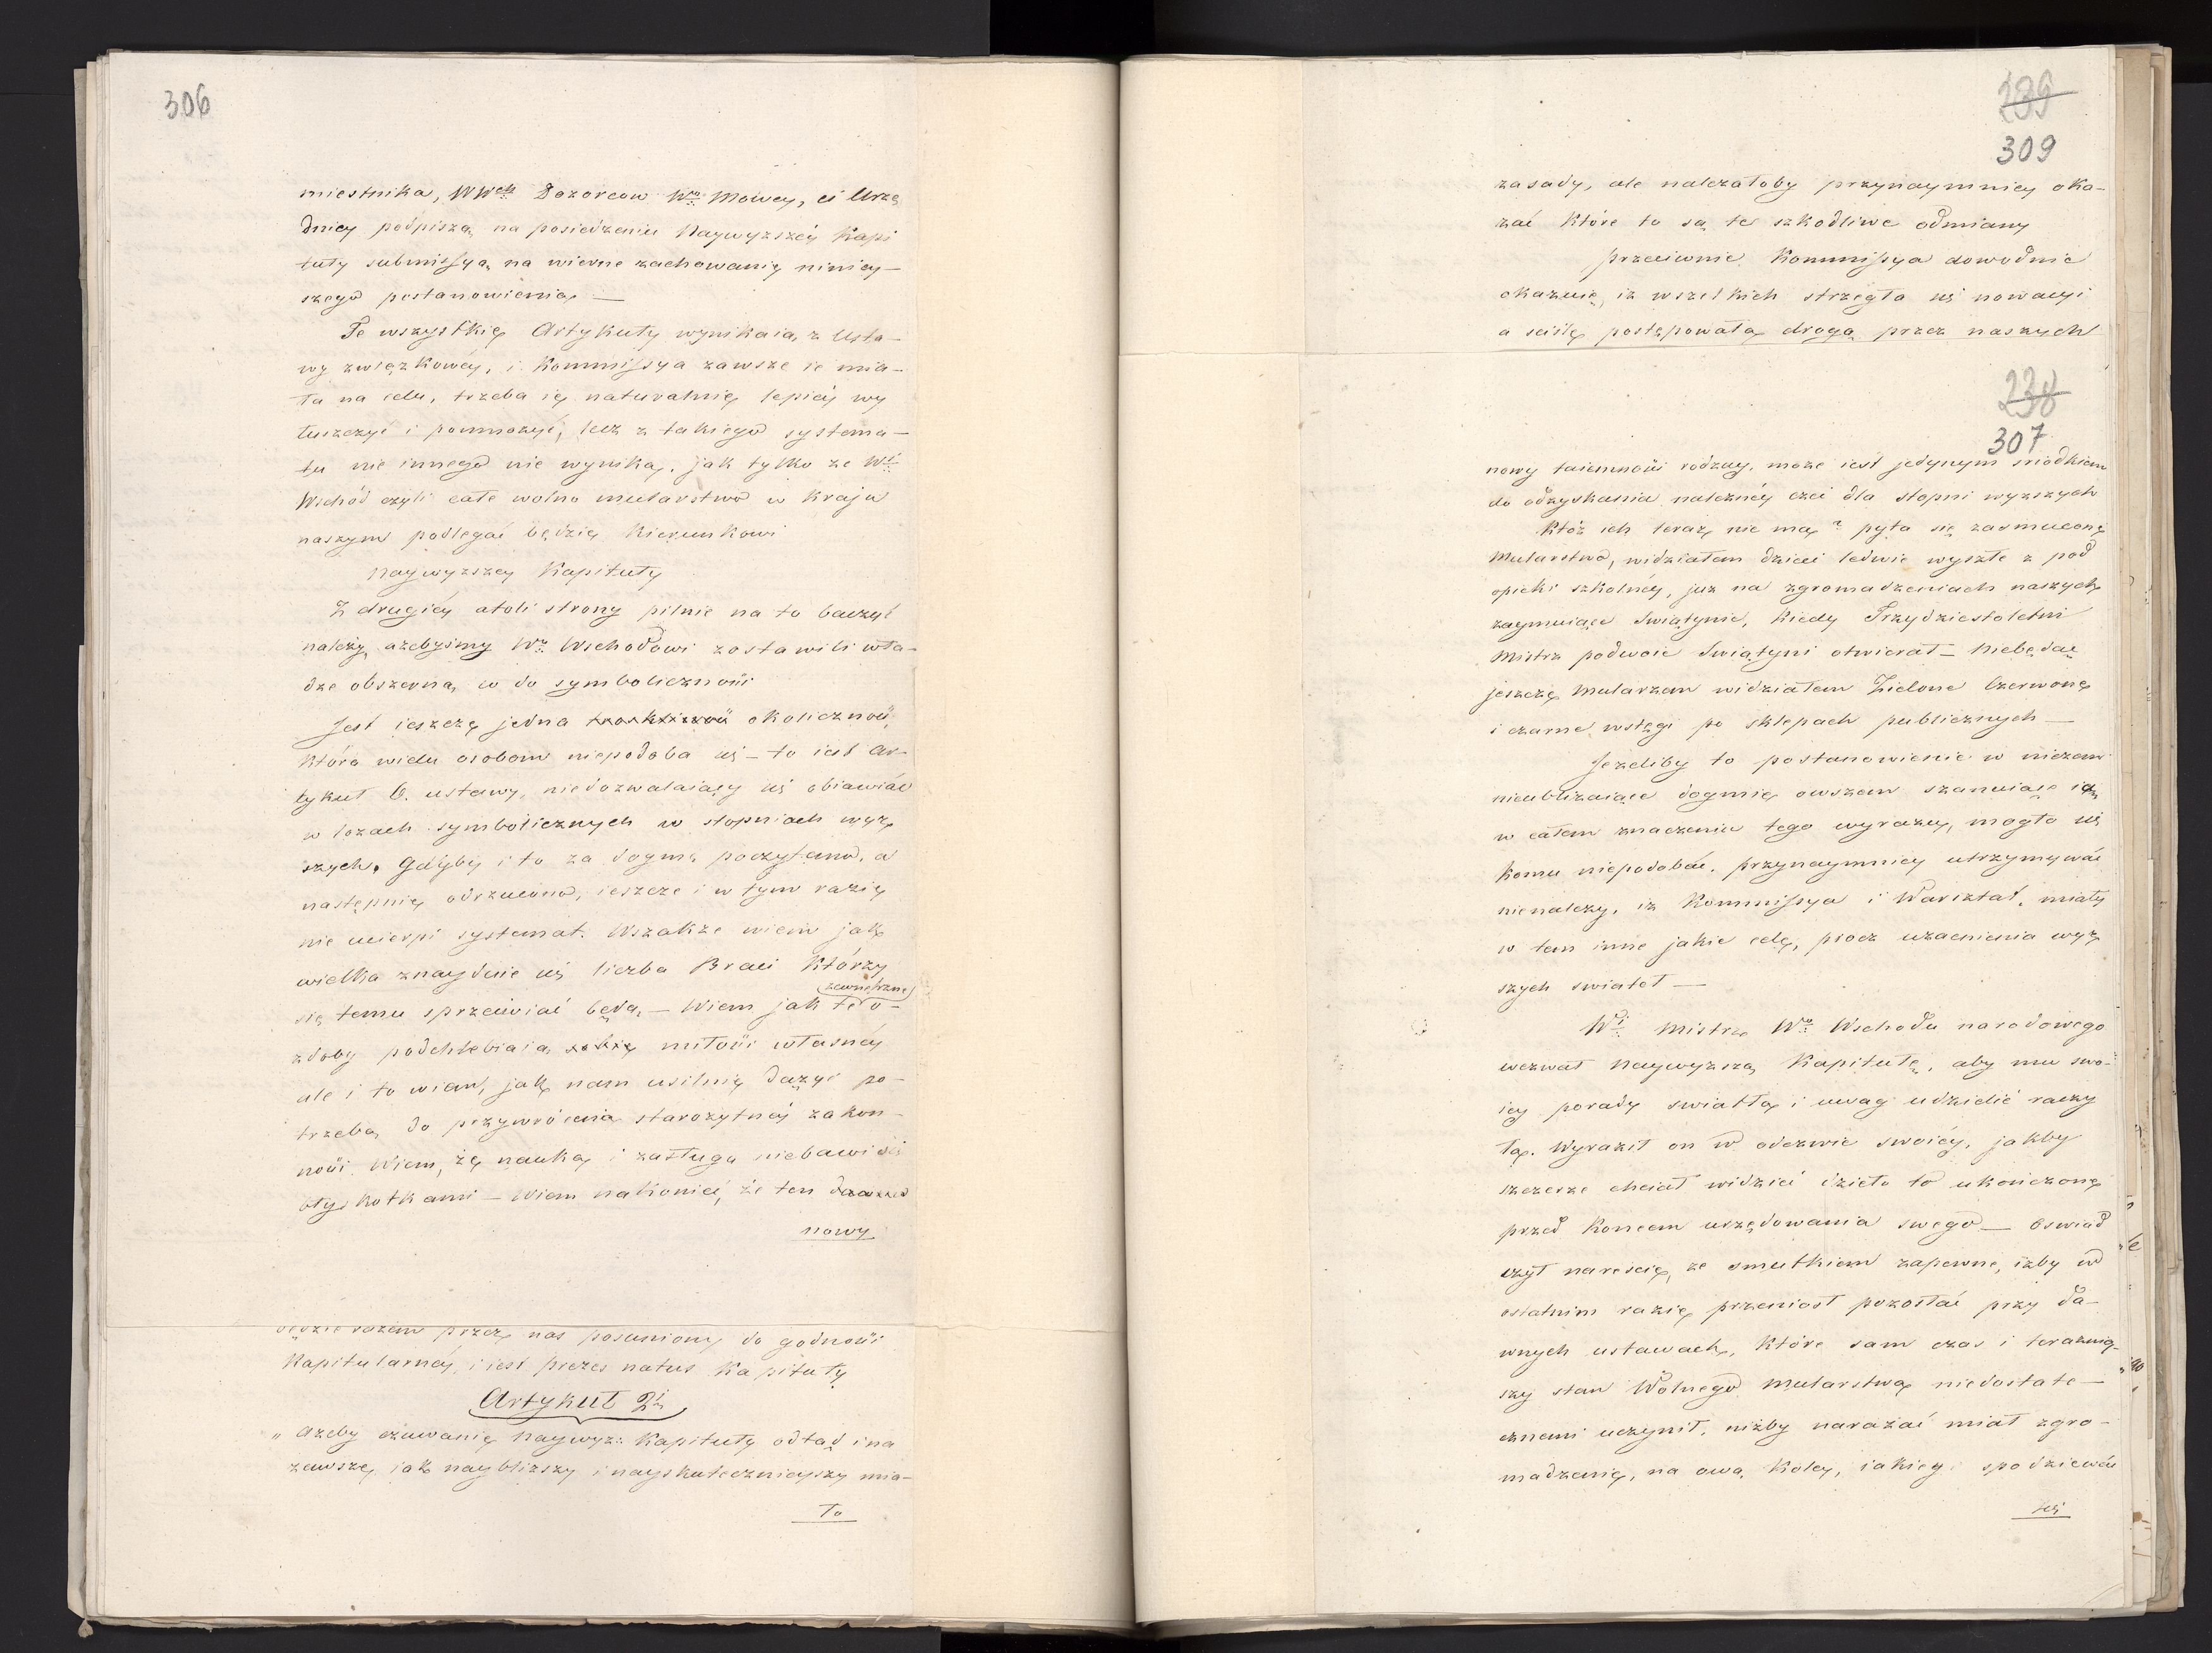 306
miestnika, WWch Dozorcow Wo Mowcy, ci Urzę
dnicy podpiszą na posiedzeniu Naywyzszéy Kapi
tuły submissyą na wierne zachowanie niniey-
szego postanowienia —
Te wszystkie Artykuły wynikaią z Usta-
wy związkowéy, i Kommissya zawsze ie mia-
ła na celu, trzeba ię naturalnie lepiéy wy
łuszczyć i pomnożyć, lecz z takiego systema-
tu nic innego nie wynika, jak tylko ze Wi
Wschód czyli całe wolno mularstwo w kraju
naszym podlegać będzie kierunkowi
Naywyzszey Kapituły
Z drugiéy atoli strony pilnie na to baczyć
należy, ażebyśmy Wu Wschodowi zostawili wła-
dze obszerną co do symboliczności
Jest ieszcze jedna okoliczność,
która wielu osobom niepodoba się — to iest ar-
tykuł 6. ustawy, niedozwalaiący się obiawiać
w lozach symbolicznych w stopniach wyz
szych. Gdyby i to za dogmę poczytano, a
następnie odrzucono, ieszcze i w tym razie
nie ucierpi systemat. Wszakże wiem jak
wielka znayduie się liczba Braci którzy
się temu sprzeciwiać będą, — Wiem jak te zewnętrzne o-
zdoby podchlebiaią miłości własnéy
ale i to wiem, jak nam usilnie dążyć po-
trzeba, do przywrócenia starożytnéy zakon-
ności. Wiem, że nauka i zasługa niebawi się
błyskotkami — Wiem nakoniec, że ten dawno
nowy
będzie razem przez nas posuniony do godności
Kapitularnéy, i iest prezes natus Kapituły
Artykuł 2i
„ Ażeby czuwanie Naywyz: Kapituły odtąd i na
zawsze, iak naybliższy i nayskutecznieyszy mia-
ło
239
309
zasady, ale należałoby przynaymniey oka-
zać które to są te szkodliwe odmiany
przeciwnie Kommissya dowodnie
okazuie, iż wszelkich strzegła się nowacyi
a ściśle postępowała drogą przez naszych
238
307
nowy taiemności rodzay, może iest jedynym śriodkiem
do odzyskania należnéy czci dla stopni wyższych
Któż ich teraz nie ma? pyta się zasmucone
Mularstwo, widziałem dzieci ledwie wyszłe z pod
opieki szkolnéy, już na zgromadzeniach naszych
zaymuiące Świątynie, kiedy Trzydziestoletni
Mistrz podwoie Świątyni otwierał — Niebędąc
jeszcze Mularzem widziałem Zielone Czerwone
i czarne wstęgi po sklepach publicznych —
Jeżeliby to postanowienie w niczem
nieubliżaiące dogmie owszem szanuiące ią
w całem znaczeniu tego wyrazu, mogło się
komu niepodobać, przynaymniey utrzymywać
nienależy, iż Kommissya i Warsztat, miały
w tem inne jakie cele, prócz uzacnienia wyz
szych świateł —
Wi Mistrz Wo Wschodu narodowego
wezwał Naywyższą Kapitułę, aby mu swo-
iey porady światła i uwag udzielić raczy
ła. Wyraził on w odezwie swoiéy, jakby
szczerze chciał widzieć dzieło to ukończone
przed końcem urzędowania swego — Oświad
czył nareście, ze smutkiem zapewne, iżby w
ostatnim razie przeniósł pozostać przy da-
wnych ustawach, które sam czas i teraźniey-
szy stan Wolnego Mularstwa niedostate-
cznemi uczynił, niżby narażać miał zgro-
madzenie, na ową koley, iakiey spodziewać
się